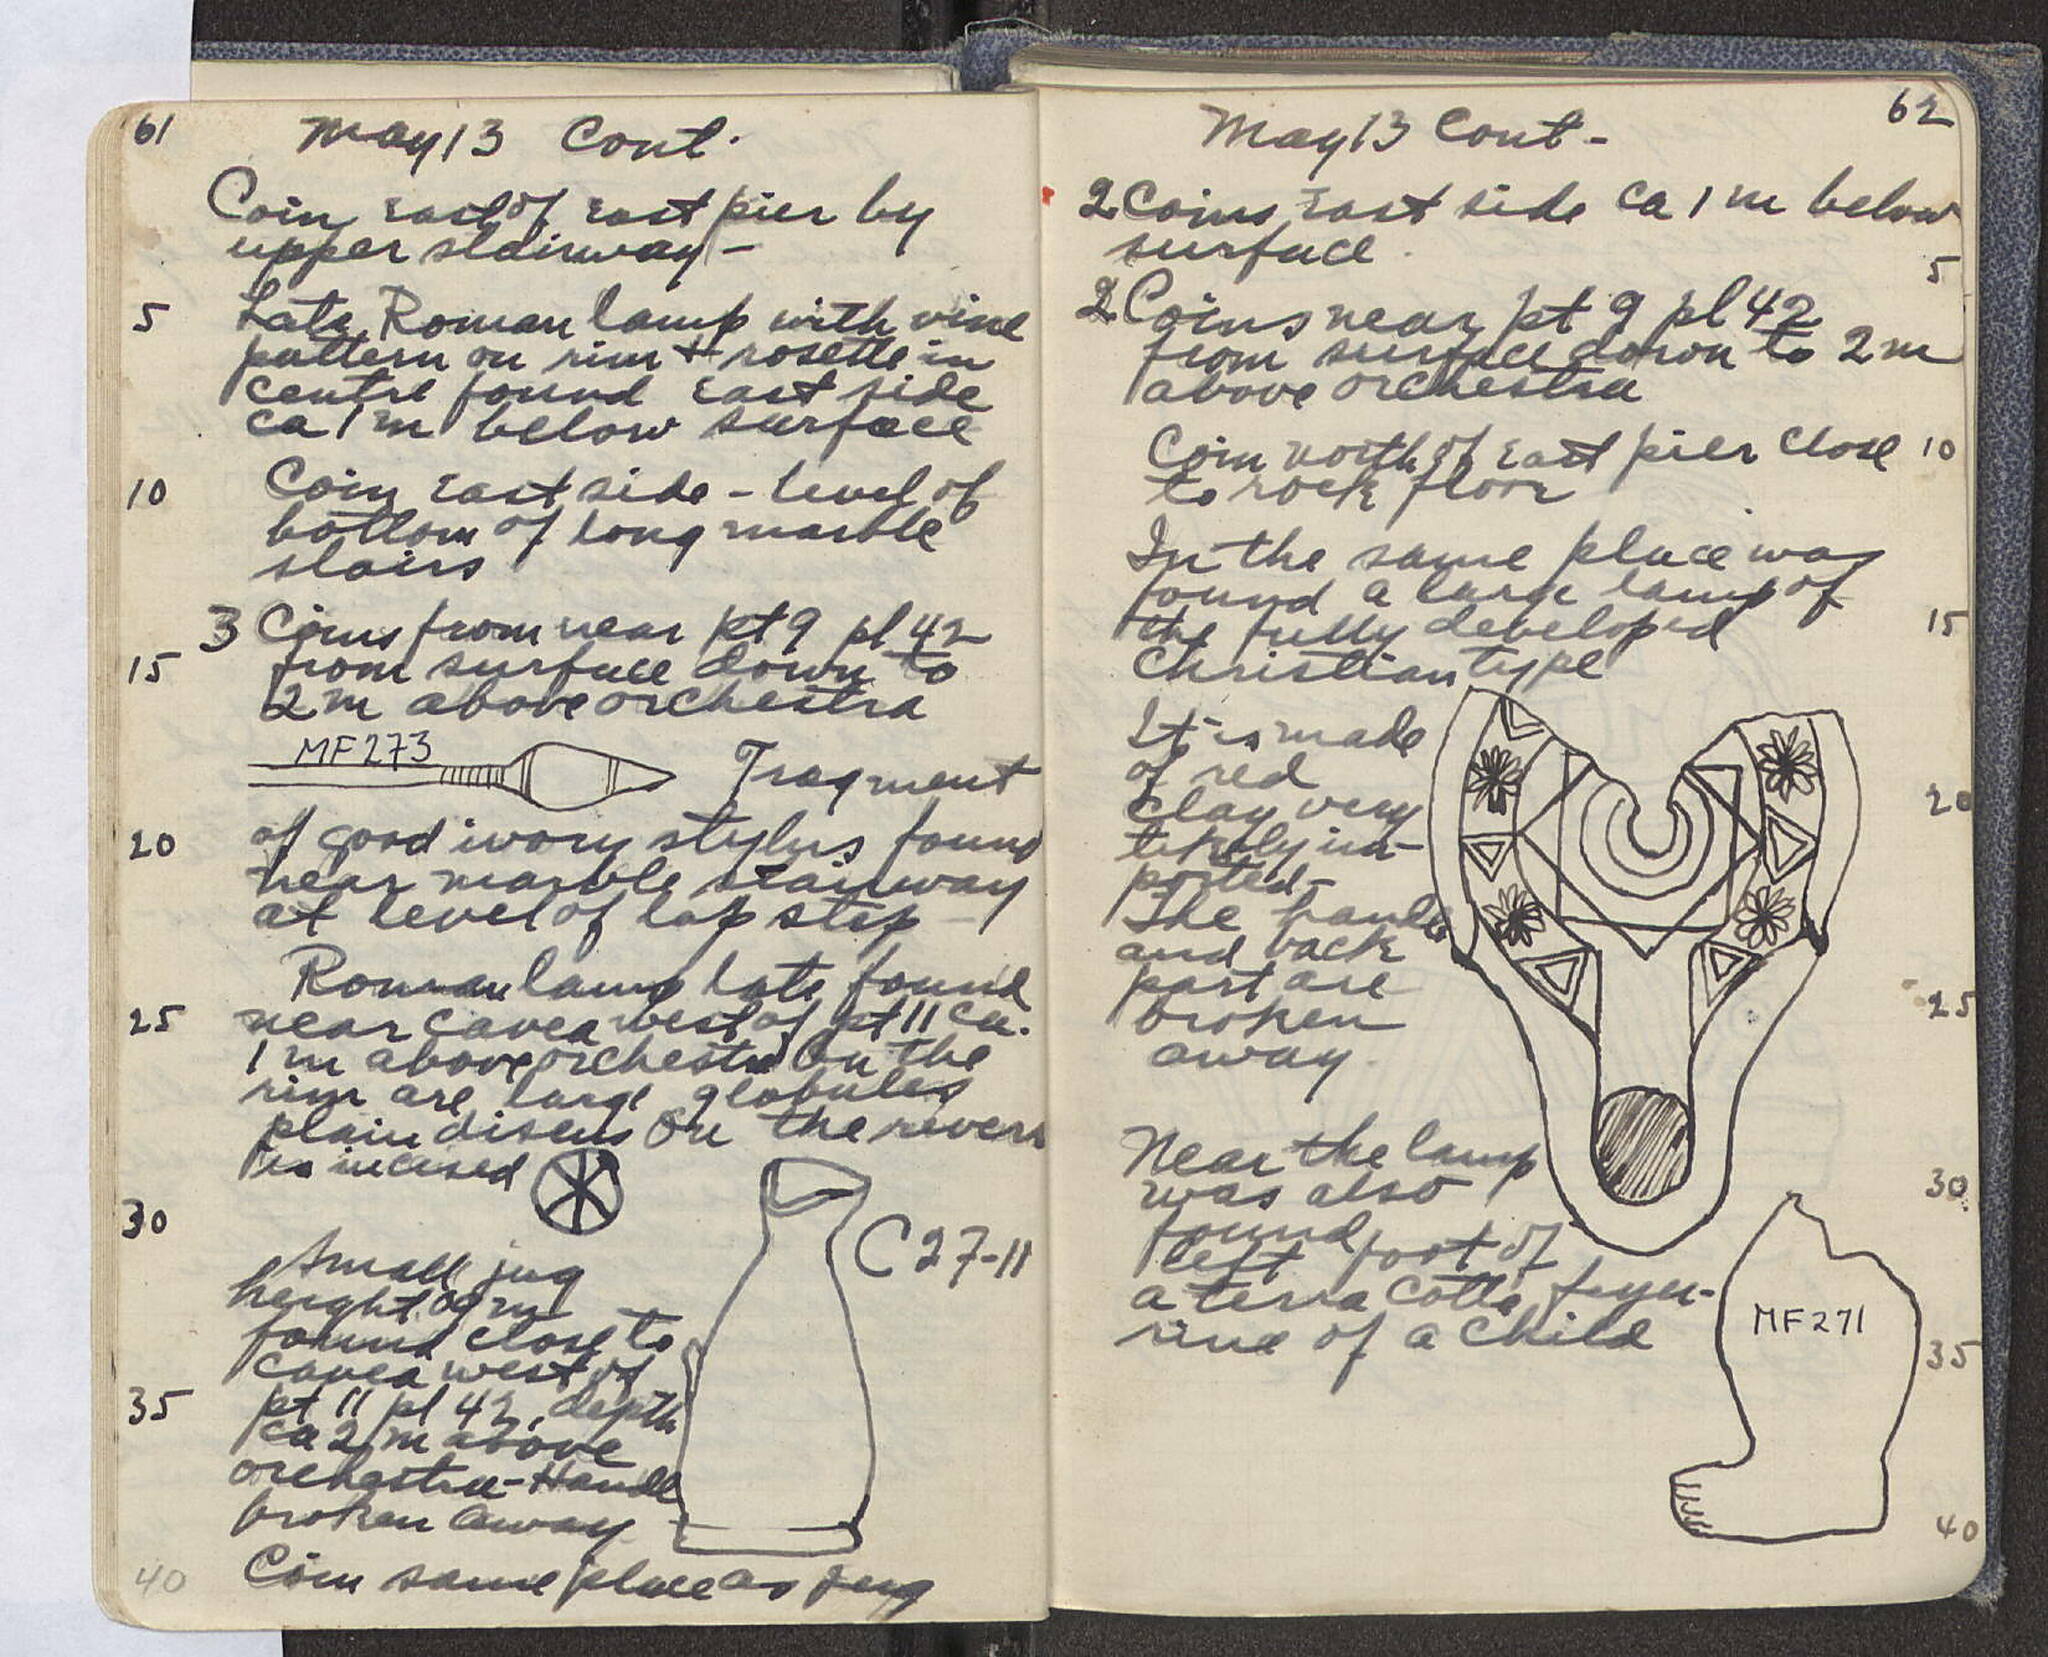 61
May 13 Cont.
Coin East of East pier by
upper stairway -
5
Late Roman lamp with vine
pattern on rim + rosette in
centre found East side
ca 1 m below surface
10
Coin East side - level of
bottom of long marble
stairs
3 Coins from near pt 9 pl 42
15
from surface down to
2 m above orchestra
MF 273
Fragment
20
of good ivory stylus found
near marble stairway
at level of top step -
Roman lamp late found
25
near cavea west of pt 11 ca.
1 m above orchestra On the
rim are large globules
plain discus On the revers
is incised
30
C 27-11
Small jug
height .09 m
found close to
cavea west of
35
pt 11 pl 42, depth
ca 2 m above
orchestra - Handle
broken away
40
Coin same place as jug
62
May 13 Cont -
2 Coins East side ca 1 m below
surface.
5
2 Coins near pt 9 pl 42
from surface down to 2 m
above orchestra
Coin north of East pier close
10
to rock floor
In the same place was
found a large lamp of
15
the fully developed
Christian type
It is made
of red
20
clay very
likely im-
ported -
The handle
and back
part are
25
broken
away.
Near the lamp
was also
30
found
left foot of
a terra cotta figu-
rine of a child
MF 271
35
40